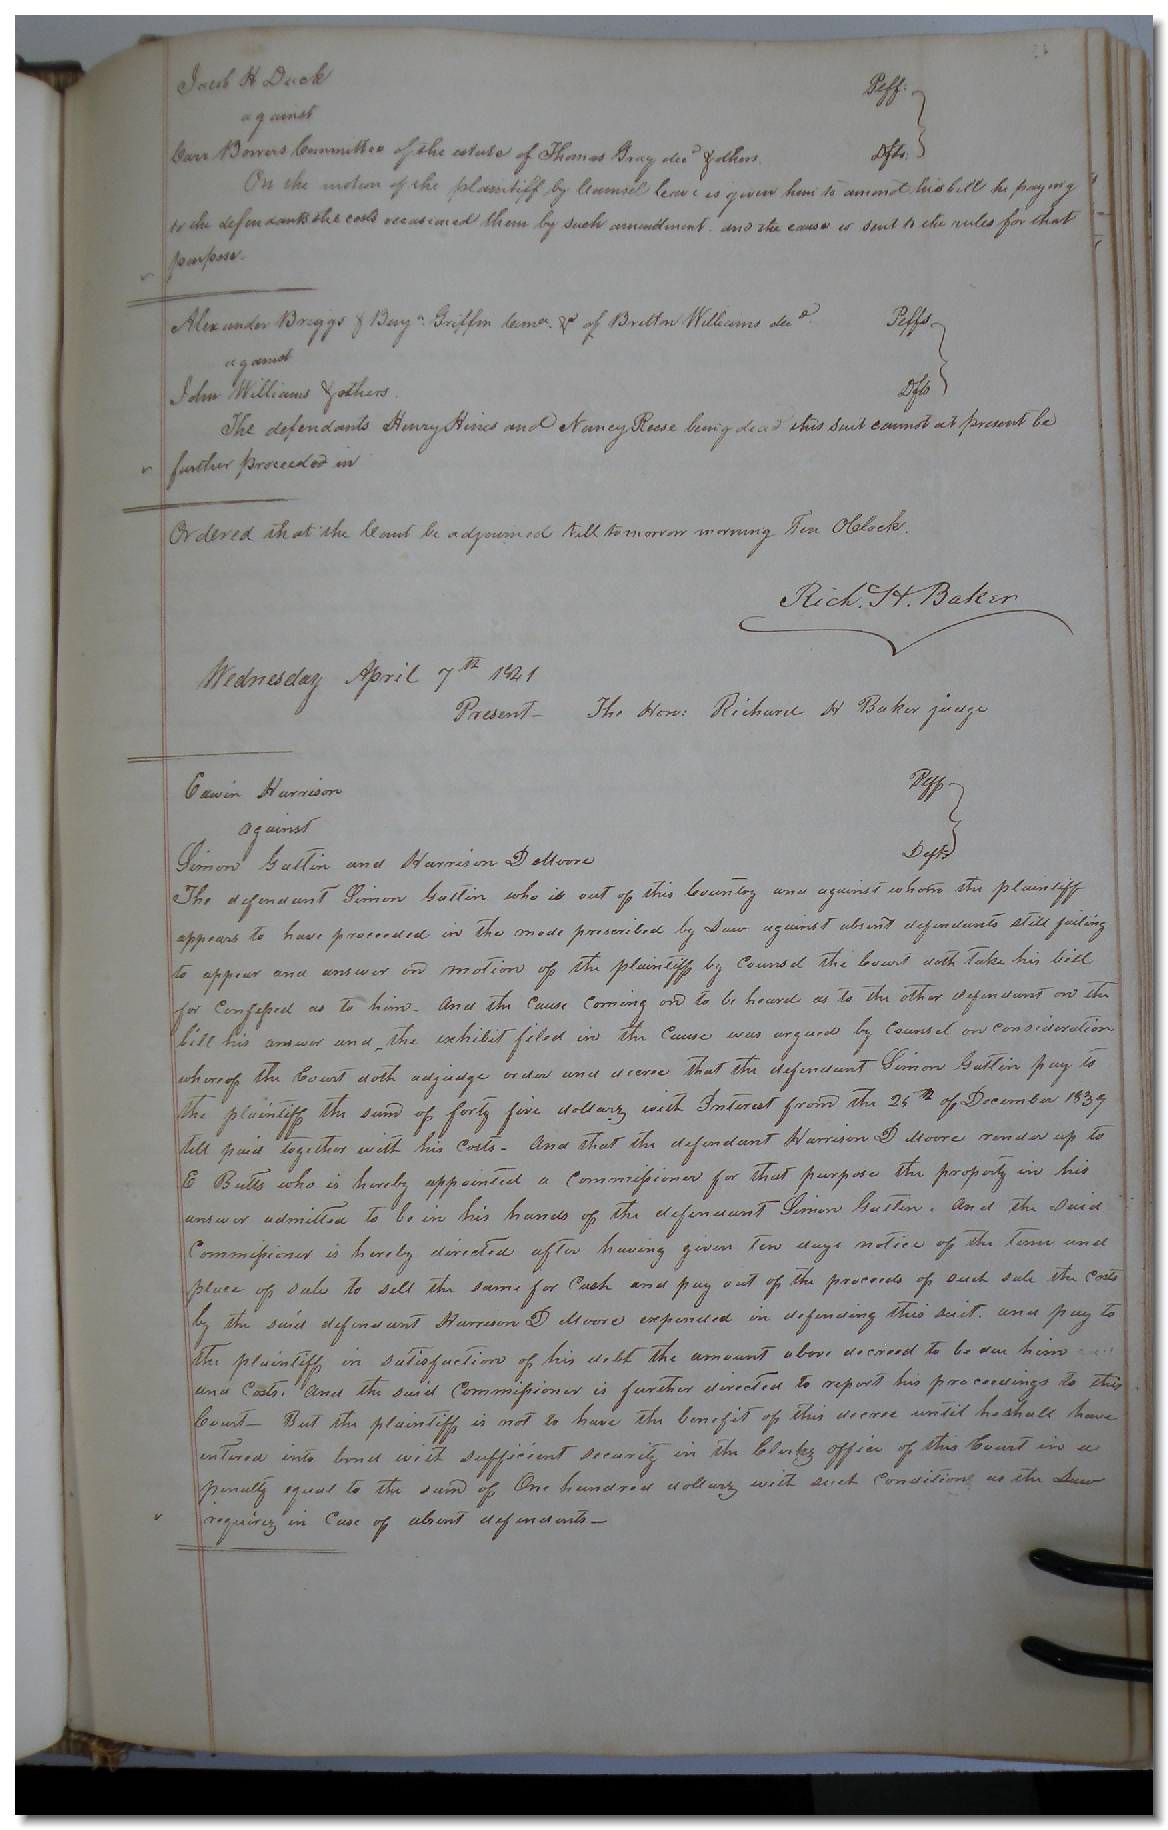 Jacob H Duck Plff.
against
Carr Bowers Committee of the estate of Thomas Gray decd & others. Dfts.
On the motion of the plaintiff by Counsel leave is given him to amend his bill he paying
to the defendants the costs occasioned them by such amendment. and the cause is sent to the rules for that
purpose.
Alexander Briggs & Benja. Griffin &c of Britton Williams decd Plffs
against
John Williams & others. Dfts
The defendants Henry Hines and Nancy Reese being dead this suit cannot at present be
further proceeded in
Ordered that the Court be adjourned till tomorrow morning Ten OClock.
Rich. H. Baker
Wednesday April 7th 1841
Present— The Hon: Richard H Baker judge
Edwin Harrison Plff
against
Simon Gattin and Harrison D Moore Defts
The defendant Simon Gattin who is out of this Country and against whom the plaintiff
appears to have proceeded in the mode prescribed by Law against absent defendants still failing
to appear and answer on motion of the plaintiff by Counsel the Court doth take his bill
for Confessed as to him. And the Cause Coming on to be heard as to the other defendant on the
bill his answer and the exhibit filed in the Cause was argued by Counsel on consideration
whereof the Court doth adjudge order and decree that the defendant Simon Gattin pay to
the plaintiff the sum of forty five dollars with Interest from the 25th of December 1839
till paid together with his Costs. And that the defendant Harrison D Moore render up to
E Butts who is hereby appointed a Commissioner for that purpose the property in his
answer admitted to be in his hands of the defendant Simon Gattin. And the said
Commissioner is hereby directed after having given ten days notice of the time and
place of sale to sell the same for Cash and pay out of the proceeds of such sale the Costs
by the said defendant Harrison D Moore expended in defending this suit. and pay to
the plaintiff in satisfaction of his debt the amount above decreed to be due him
and Costs. And the said Commissioner is further directed to report his proceedings to this
Court— But the plaintiff is not to have the benefit of this decree until he shall have
entered into bond with sufficient security in the Clerks office of this Court in a
penalty equal to the sum of One hundred dollars with such Condition as the Law
requires in Case of absent defendants—